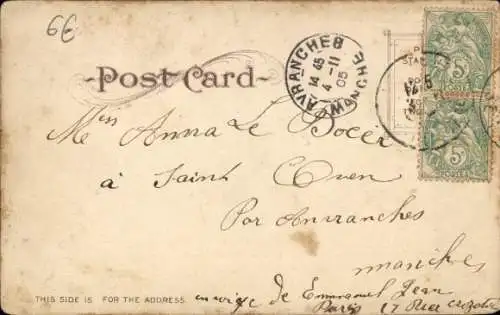 6E
POST CARD
AVRANCHES
14 45
4 -11
05
MANCHE
5
5
POSTES
Miss Anna Le Bocer
à Saint Ouen
Par Avranches
manche
THIS SIDE IS FOR THE ADDRESS.
de Emmanuel Jean
Paris 17 Rue